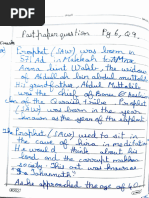 Past paper question Pg 6, Q9.
a) Prophet (SAW) was born in
571 AD in Makkah to Amina
bint Wahb, the widow
of Abdullah ibn Abdul Muttalib
His grandfather Abdul Muttalib
was the Chief of Banu Hashim
clan of the Quraish Tribe. Prophet
(SAW) was born in the year
known as the year of the elephant
Prophet (SAW) used to sit in
the cave of Hira in meditation
He would think about his
Lord and the corrupt makkan
society. This was known as
"
As he approached the age of 40